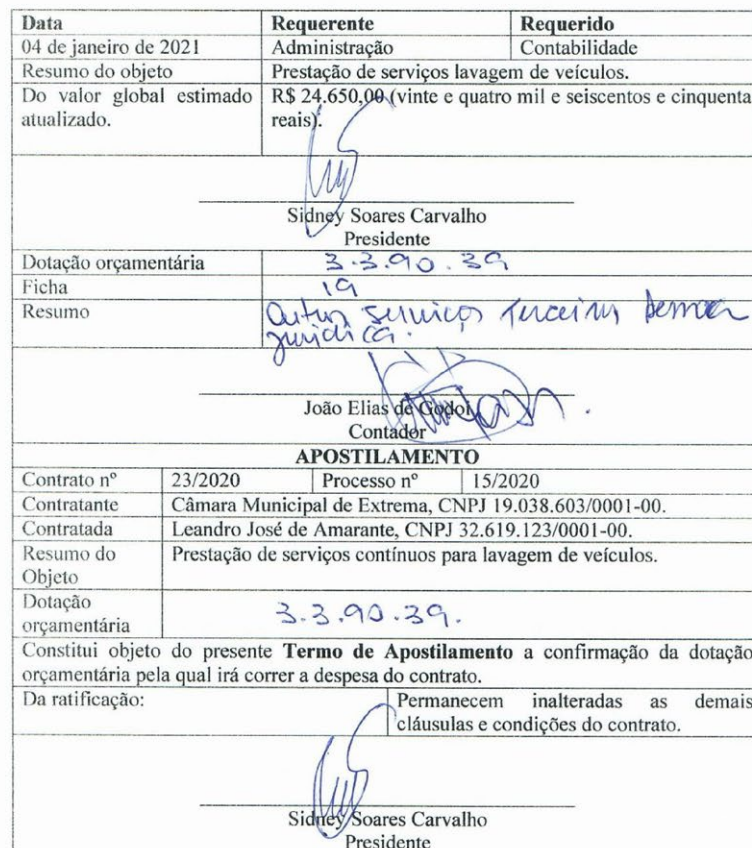 Data Requerente Requerido
04 de janeiro de 2021 Administração Contabilidade
Resumo do objeto Prestação de serviços lavagem de veículos.
Do valor global estimado R$ 24.650,00 (vinte e quatro mil e seiscentos e cinquenta
atualizado. reais).
Sidney Soares Carvalho
Presidente
Dotação orçamentária 3.3.90.39
Ficha 19
Resumo Outros serviços Terceiros pessoa
jurídica.
João Elias de Godoi
Contador
APOSTILAMENTO
Contrato nº 23/2020 Processo nº 15/2020
Contratante Câmara Municipal de Extrema, CNPJ 19.038.603/0001-00.
Contratada Leandro José de Amarante, CNPJ 32.619.123/0001-00.
Resumo do Prestação de serviços contínuos para lavagem de veículos.
Objeto
Dotação
orçamentária 3.3.90.39.
Constitui objeto do presente Termo de Apostilamento a confirmação da dotação
orçamentária pela qual irá correr a despesa do contrato.
Da ratificação: Permanecem inalteradas as demais
cláusulas e condições do contrato.
Sidney Soares Carvalho
Presidente